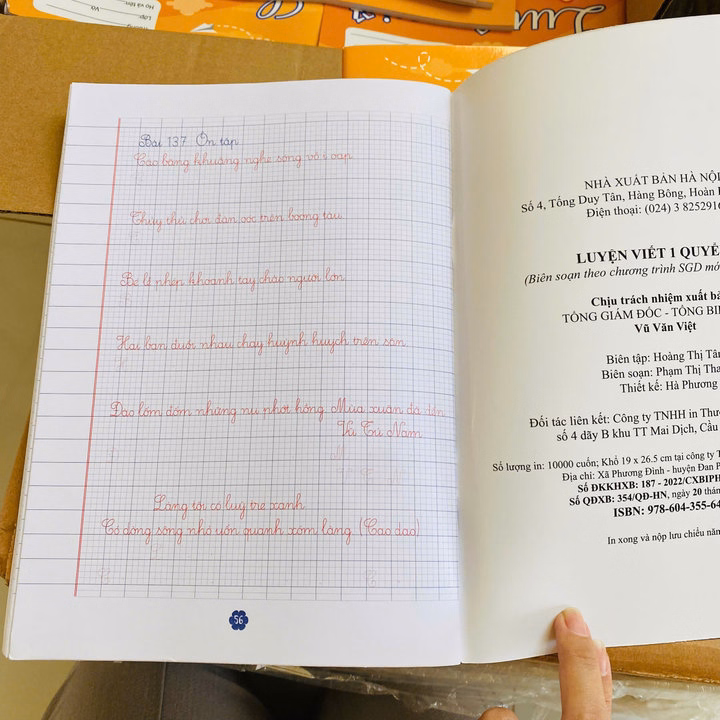 Lớp:
Họ và tên:
Bài 137 Ôn tập
Cáo bâng khuâng nghe sóng vỗ ì oạp
Thủy thủ chơi đàn oóc trên boong tàu
Bé lễ phép khoanh tay chào người lớn
Hai bạn đuổi nhau chạy huỳnh huỵch trên sân.
Đào lốm đốm những nụ nhớt hồng Mùa xuân đã đến
Vũ Tú Nam
Làng tôi có luỹ tre xanh
Có dòng sông nhỏ uốn quanh xóm làng (Cao dao)
56
NHÀ XUẤT BẢN HÀ NỘI
Số 4, Tống Duy Tân, Hàng Bông, Hoàn
Điện thoại: (024) 3 8252916
LUYỆN VIẾT 1 QUYỂ
(Biên soạn theo chương trình SGD mới
Chịu trách nhiệm xuất bả
TỔNG GIÁM ĐỐC - TỔNG BI
Vũ Văn Việt
Biên tập: Hoàng Thị Tâ
Biên soạn: Phạm Thị Tha
Thiết kế: Hà Phương
Đối tác liên kết: Công ty TNHH in Thư
số 4 dãy B khu TT Mai Dịch, Cầu
Số lượng in: 10000 cuốn; Khổ 19 x 26.5 cm tại công ty T
Địa chỉ: Xã Phương Đình - huyện Đan P
Số ĐKKHXB: 187 - 2022/CXBIPH
Số QĐXB: 354/QĐ-HN, ngày 20 thán
ISBN: 978-604-355-64
In xong và nộp lưu chiểu năm